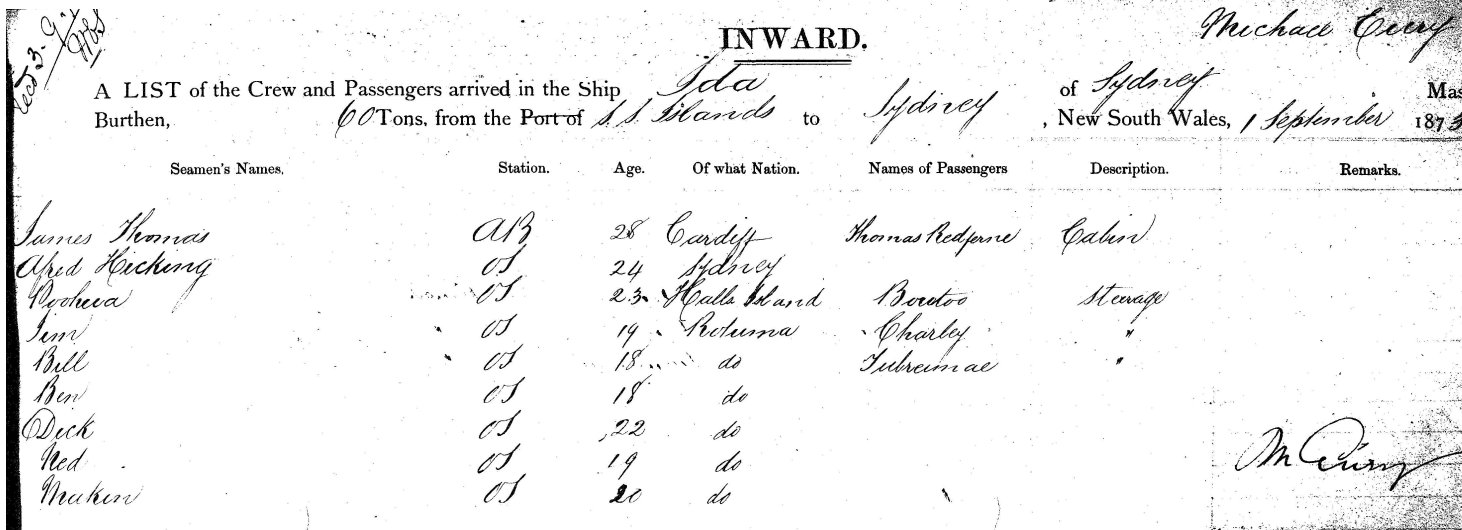 INWARD.
Michael
A LIST of the Crew and Passengers arrived in the Ship Ida of Sydney Mas
Burthen, 60 Tons, from the Port of S S Islands to Sydney, New South Wales, 1 September 1873
Seamen's Names, Station. Age. Of what Nation. Names of Passengers Description. Remarks.
James Thomas AB 28 Cardiff Thomas Redferne Cabin
Alfred Hicking OS 24 Sydney
OS 23 Halls Island Boutoo steerage
Jim OS 19 Rotuma Charley "
Bill OS 18 do "
Ben OS 18 do
Dick OS 22 do
Ned OS 19 do
OS 20 do